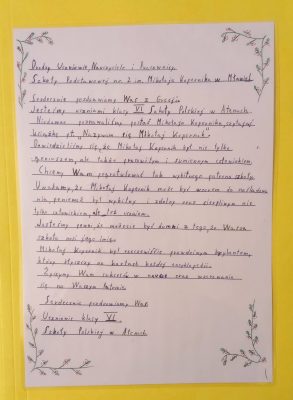 Drodzy Uczniowie, Nauczyciele i Pracownicy
Szkoły Podstawowej nr 2 im. Mikołaja Kopernika w
Serdecznie pozdrawiamy Was z Grecji
Jesteśmy uczniami klasy VI Szkoły Polskiej w Atenach.
Niedawno poznawaliśmy postać Mikołaja Kopernika, czytając
książkę pt. „Nazywam się Mikołaj Kopernik”
Dowiedzieliśmy się, że Mikołaj Kopernik był nie tylko
ale także prawdziwym i sumiennym człowiekiem.
Chcemy Wam pogratulować tak wybitnego patrona szkoły.
Uważamy, że Mikołaj Kopernik może być wzorem do naśladowa
nia, ponieważ był wybitny i zdolny oraz cierpliwym nie
tylko człowiekiem, ale też uczniem.
Jesteśmy pewni, że możecie być dumni z tego, że Wasza
szkoła nosi jego imię.
Mikołaj Kopernik był rzeczywiście prawdziwym
który na kartach każdej encyklopedii
Życzymy Wam sukcesów w nauce oraz
się na Waszym
Serdecznie pozdrawiamy Was
Uczniowie klasy VI
Szkoły Polskiej w Atenach